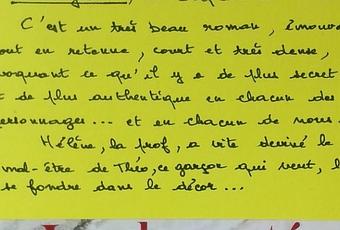 C'est un très beau roman, émouv
out en retenue, court et très dense,
voquant ce qu'il y a de plus secret
de plus authentique en chacun des
ersonnages... et en chacun de nous.
Hélène, la prof, a vite deviné le
mal-être de Théo, ce garçon qui veut,
se fondre dans le décor...